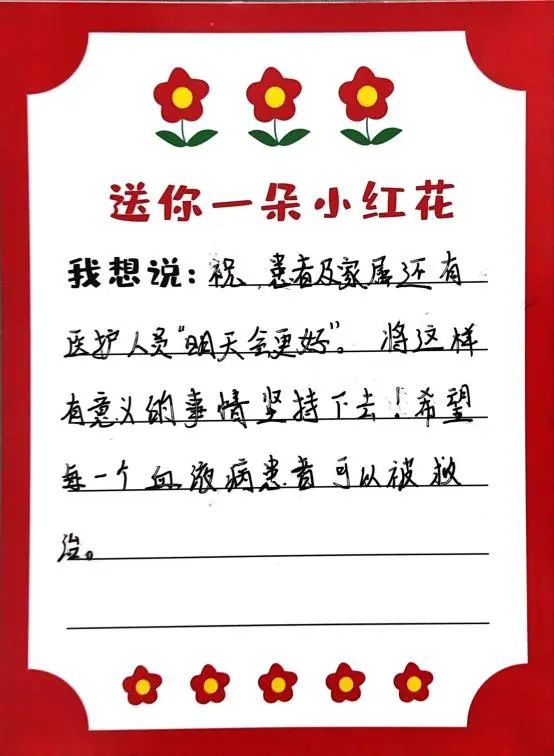 送你一朵小红花
我想说：祝患者及家属还有
医护人员“明天会更好”。将这样
有意义的事情坚持下去！希望
每一个血液病患者可以被救
治。